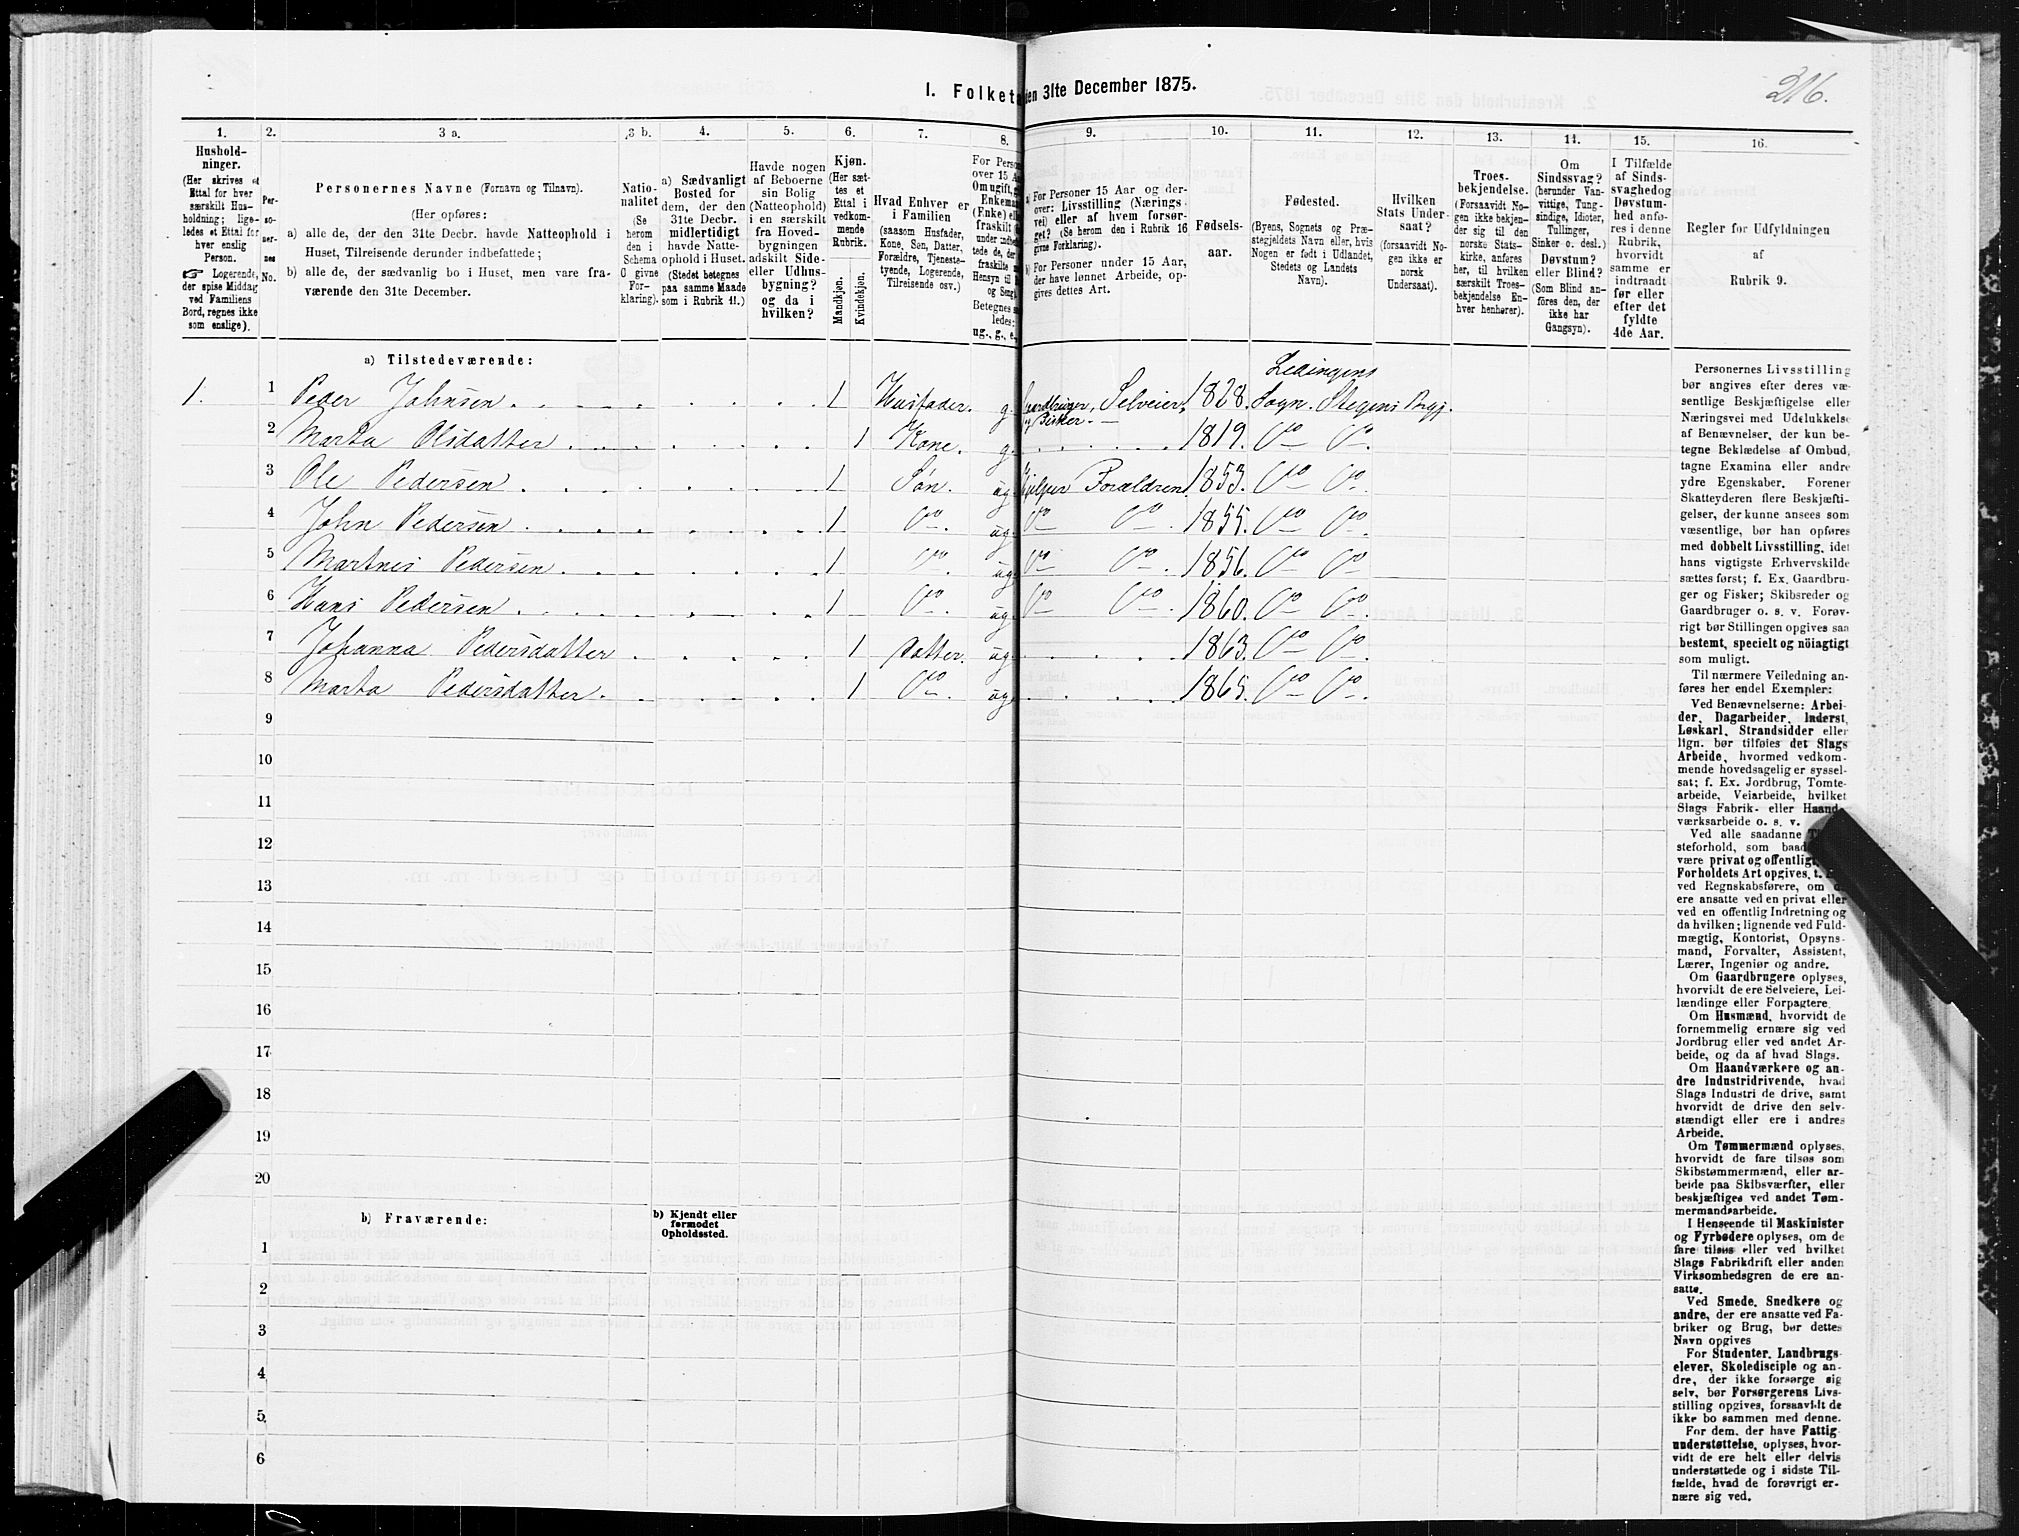 216.
I. Folketa
den 31te December 1875.
1.
2.
3 a.
3 b.
4.
5.
6.
7.
8.
9.
10.
11.
12.
13.
14.
15.
16.
Hushold-
ninger.
(Her skrives et
Ettal for hver
særskilt Hus-
holdning; lige-
ledes et Ettal for
hver enslig
Person.
☞ Logerende,
der spise Middag
ved Familiens
Bord, regnes ikke
som enslige).
Per-
so-
ner-
nes
No.
Personernes Navne (Fornavn og Tilnavn).
(Her opføres:
a) alle de, der den 31te Decbr. havde Natteophold i
Huset, Tilreisende derunder indbefattede;
b) alle de, der sædvanlig bo i Huset, men vare fra-
værende den 31te December.
Natio-
nalitet
(Se
herom
den i
Schema
O givne
For-
klaring).
a) Sædvanligt
Bosted for
dem, der den
31te Decbr.
midlertidigt
havde Natte-
ophold i Huset.
(Stedet betegnes
paa samme Maade
som i Rubrik 11.)
Havde nogen
af Beboerne
sin Bolig
(Natteophold)
i en særskilt
fra Hoved-
bygningen
adskilt Side-
eller Udhus-
bygning?
og da i
hvilken?
Kjøn.
(Her sæt-
tes et
Ettal i
vedkom-
mende
Rubrik.
Mandkjøn.
Kvindekjøn.
Hvad Enhver er
i Familien
(saasom Husfader,
Kone, Søn, Datter,
Forældre, Tjeneste-
tyende, Logerende,
Tilreisende osv.)
For Perso
over 15 A
Om ugift, g
Enkema
(Enke) elle
fraskilt
under
tede de,
fraskilte
Hensyn til
og Seng.
Betegnes s
ledes:
ug., g., e.,
a) For Personer 15 Aar og der-
over: Livsstilling (Nærings
vei) eller af hvem forsør-
get? (Se herom den i Rubrik 16
givne Forklaring).
b) For Personer under 15 Aar,
der have lønnet Arbeide, op-
gives dettes Art.
Fødsels-
aar.
Fødested.
(Byens, Sognets og Præ-
stegjeldets Navn eller, hvis
Nogen er født i Udlandet,
Stedets og Landets
Navn).
Hvilken
Stats Under-
saat?
(forsaavidt No-
gen ikke er
norsk
Undersaat).
Troes-
bekjendelse.
(Forsaavidt No-
gen ikke bekjen-
der sig til den
norske Stats-
kirke, anføres
her, til hvilken
særskilt Troes-
bekjendelse En-
hver henhører).
Om
Sindssvag?
(herunder Van-
vittige, Tung-
sindige, Idioter,
Tullinger,
Sinker o. desl.)
Døvstum?
eller Blind?
(Som Blind an-
føres den, der
ikke har
Gangsyn).
I Tilfælde
af Sinds-
svaghed og
Døvstum-
hed anfø-
res i denne
Rubrik,
hvorvidt
samme er
indtraadt
før eller
efter det
fyldte
4de Aar.
Regler for Udfyldningen
af
Rubrik 9.
a) Tilstedeværende:
Ledingens
1. 1 Peder Johnsen 1 Husfader. g. Gaardbruger, Selveier, 1828. Sogn. Stegens Prgj.
og Fisker.
2 Marta Olsdatter 1 Kone. g. 1819. Do Do
3 Ole Pedersen 1 Søn. ug. hjelper Forældren 1853. Do Do
4 John Pedersen 1 Do ug. Do Do 1855. Do Do
5 Martnes Pedersen 1 Do ug. Do Do 1856. Do Do
6 Hans Pedersen 1 Do ug. Do Do 1860. Do Do
7 Johanna Pedersdatter 1 Datter. ug. 1863. Do Do
8 Marta Pedersdatter. 1 Do ug. 1865. Do Do
9
10
11
12
13
14
15
16
17
18
19
20
b) Fraværende:
b) Kjendt eller
formodet
Opholdssted.
1
2
3
4
5
6
Personernes Livsstilling
bør angives efter deres væ-
sentlige Beskjæftigelse eller
Næringsvei med Udelukkelse
af Benævnelser, der kun be-
tegne Beklædelse af Ombud,
tagne Examina eller andre
ydre Egenskaber. Forener
Skatteyderen flere Beskjæfti-
gelser, der kunne ansees som
væsentlige, bør han opføres
med dobbelt Livsstilling, idet
hans vigtigste Erhvervskilde
sættes først; f. Ex. Gaardbru-
ger og Fisker; Skibsreder og
Gaardbruger o. s. v. Forøv-
rigt bør Stillingen opgives saa
bestemt, specielt og nöiagtigt
som muligt.
Til nærmere Veiledning an-
føres her endel Exempler:
Ved Benævnelserne: Arbei-
der, Dagarbeider, Inderst,
Løskarl, Strandsidder eller
lign. bør tilføies det Slags
Arbeide, hvormed vedkom-
mende hovedsagelig er syssel-
sat; f. Ex. Jordbrug, Tomte-
arbeide, Veiarbeide, hvilket
Slags Fabrik- eller Haand-
værksarbeide o. s. v.
Ved alle saadanne
steforhold, som baad
være privat og offentligt,
Forholdets Art opgives, t. E
ved Regnskabsførere, om d
ere ansatte ved en privat eller
ved en offentlig Indretning og
da hvilken; lignende ved Fuld-
mægtig, Kontorist, Opsyns-
mand, Forvalter, Assistent,
Lærer, Ingeniør og andre.
Om Gaardbrugere oplyses,
hvorvidt de ere Selveiere, Lei-
lændinge eller Forpagtere.
Om Husmænd, hvorvidt de
fornemmelig ernære sig ved
Jordbrug eller ved andet Ar-
beide, og da af hvad Slags.
Om Haandværkere og an-
dre Industridrivende, hvad
Slags Industri de drive, samt
hvorvidt de drive den selv-
stændigt eller ere i andres
Arbeide.
Om Tømmermænd oplyses,
hvorvidt de fare tilsøs som
Skibstømmermænd, eller ar-
beide paa Skibsværfter, eller
beskjæftiges ved andet Tøm-
mermandsarbeide.
I Henseende til Maskinister
og Fyrbødere oplyses, om de
fare tilsøs eller ved hvilket
Slags Fabrikdrift eller anden
Virksomhedsgren de ere an-
satte.
Ved Smede, Snedkere og
andre, der ere ansatte ved Fa-
briker og Brug, bør dettes
Navn opgives
For Studenter, Landbrugs-
elever, Skoledisciple og an-
dre, der ikke forsørge sig
selv, bør Forsørgerens Livs-
stilling opgives, forsaavidt de
ikke bo sammen med denne.
For dem, der have Fattig-
understøttelse, oplyses, hvor-
vidt de ere helt eller delvis
understøttede og i sidste Til-
fælde, hvad de forøvrigt er-
nære sig ved.